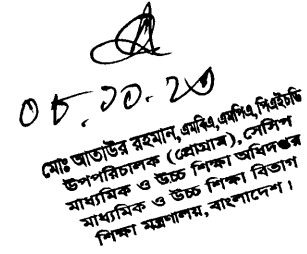 ০৮.১০.২০
মোঃ আতাউর রহমান, এমবিএ, এমপিএ, পিএইচডি
উপপরিচালক (প্রোগ্রাম), সেসিপ
মাধ্যমিক ও উচ্চ শিক্ষা অধিদপ্তর
মাধ্যমিক ও উচ্চ শিক্ষা বিভাগ
শিক্ষা মন্ত্রণালয়, বাংলাদেশ।